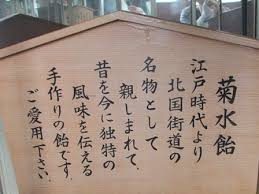 菊水飴
江戸時代より
北国街道の
名物として
親しまれて、
昔を今に独特の
風味を伝える
手作りの飴です。
ご愛用下さい。